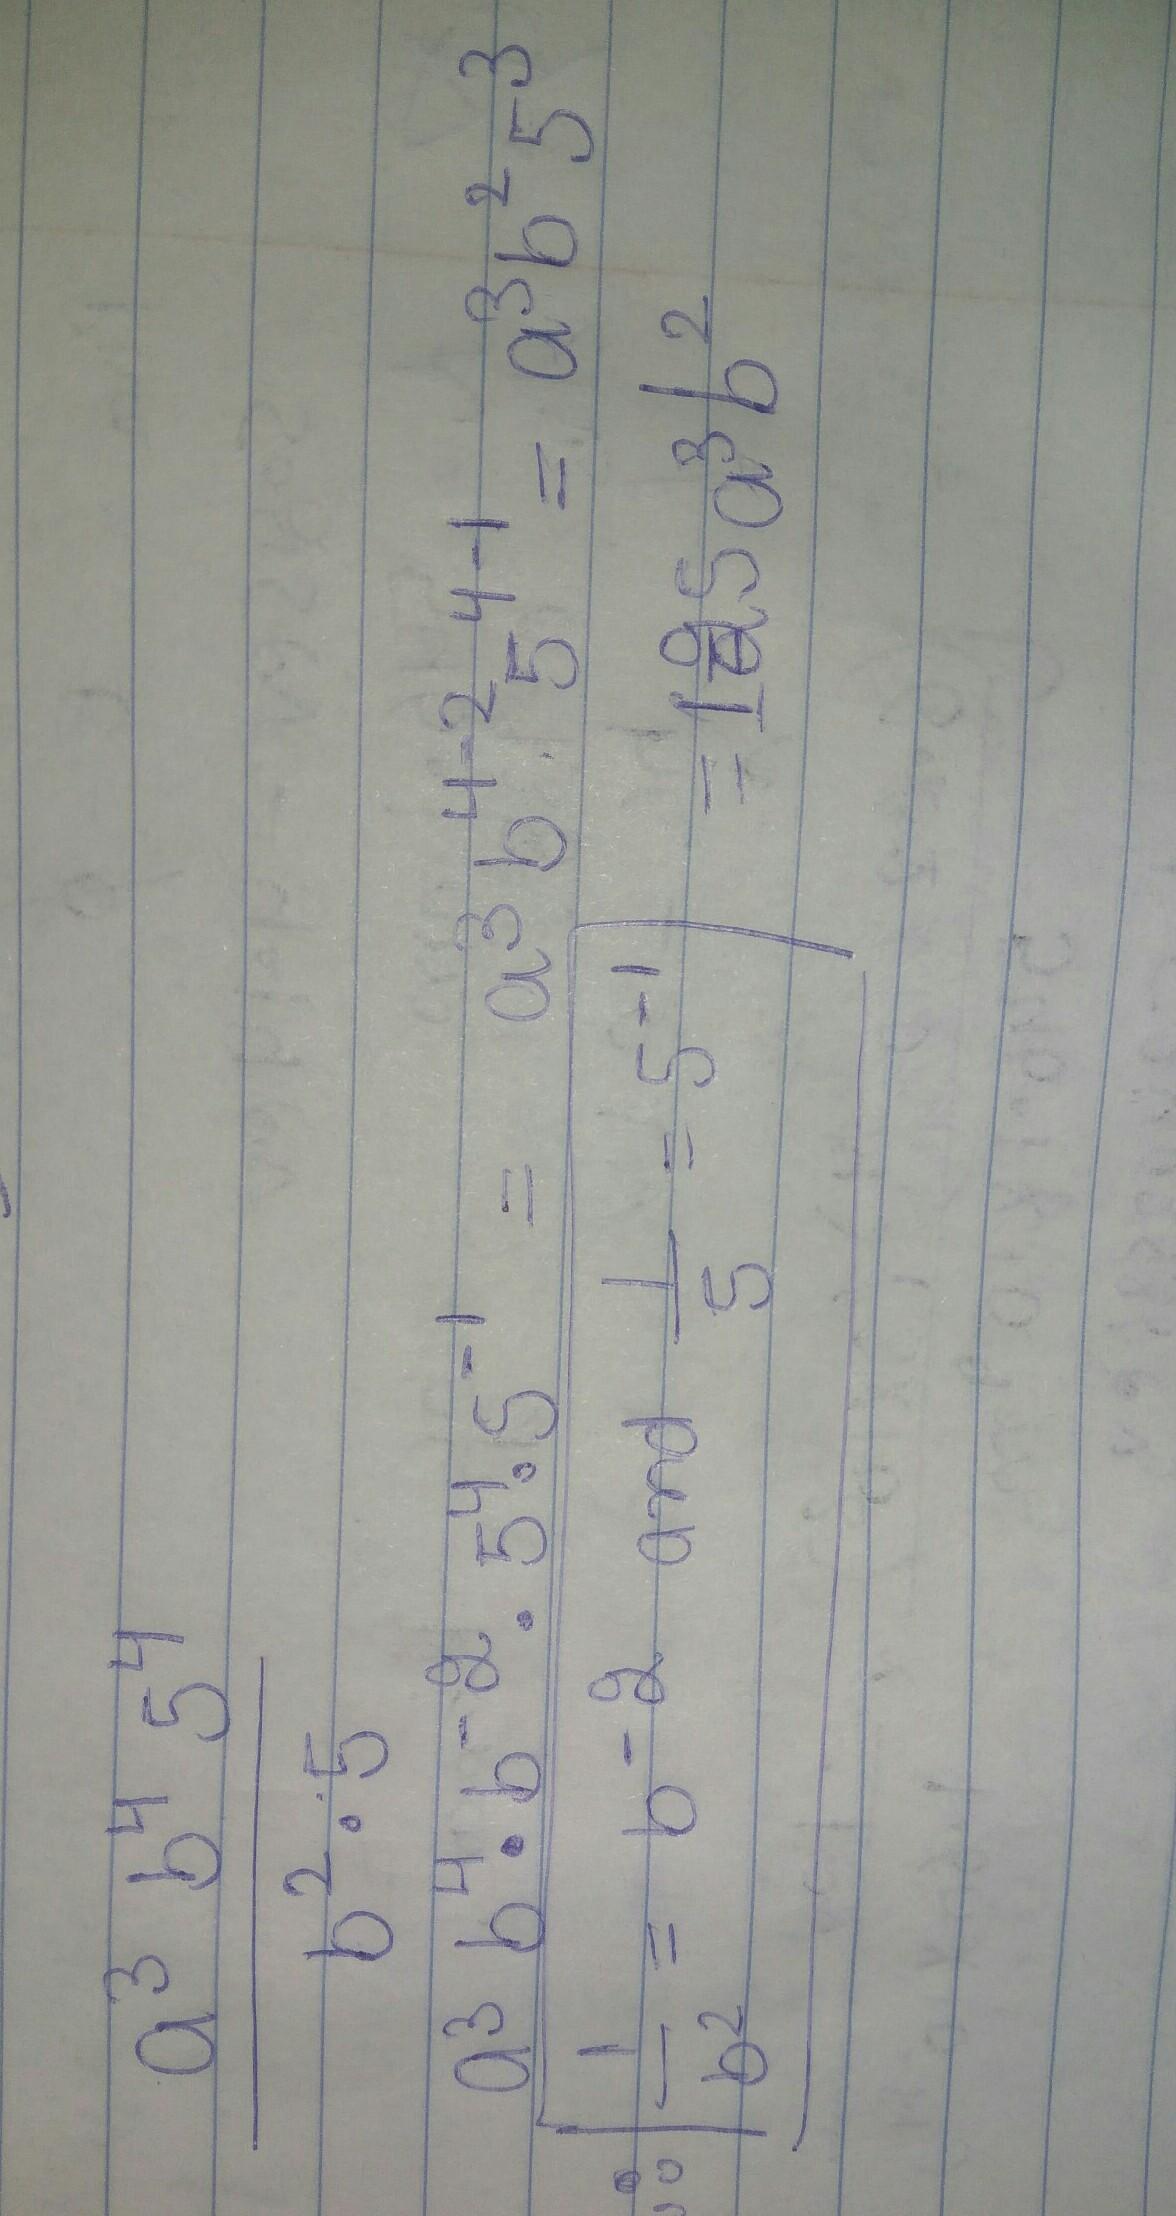 a³ b⁴ 5⁴
b² . 5
a³ b⁴ . b⁻² . 5⁴ . 5⁻¹ = a³ b⁴⁻² . 5⁴⁻¹ = a³ b² 5³
1/b² = b⁻² and 1/5 = 5⁻¹
= 125 a³ b²